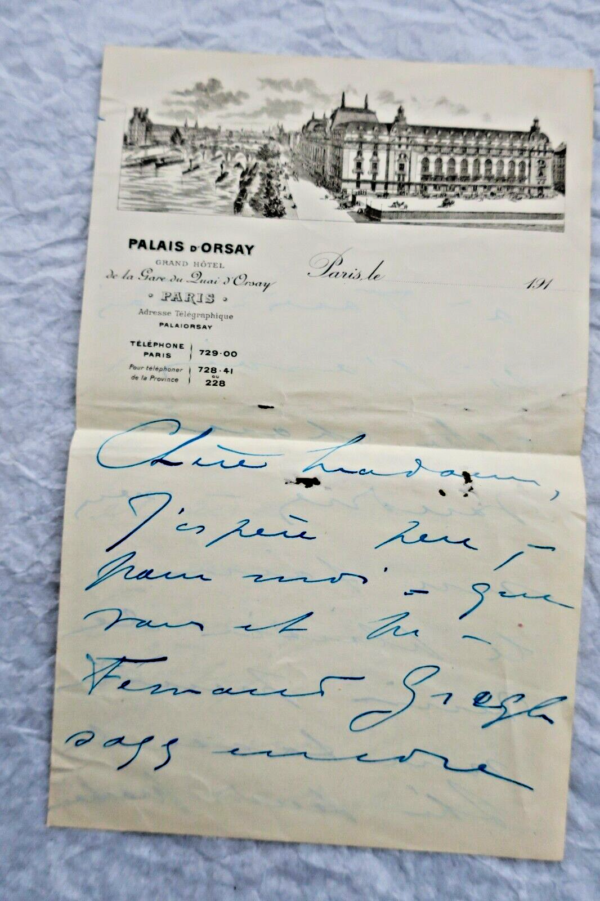 PALAIS D'ORSAY
GRAND HÔTEL
de la Gare du Quai d'Orsay
• PARIS •
Adresse Télégraphique
PALAIORSAY
TÉLÉPHONE PARIS | 729-00
Pour téléphoner de la Province | 728-41 OU 228
Paris, le 191
Chère Madame,
J'espère peu, –
pour moi – que
vous et Mr –
Fernand Gregh
soyez encore